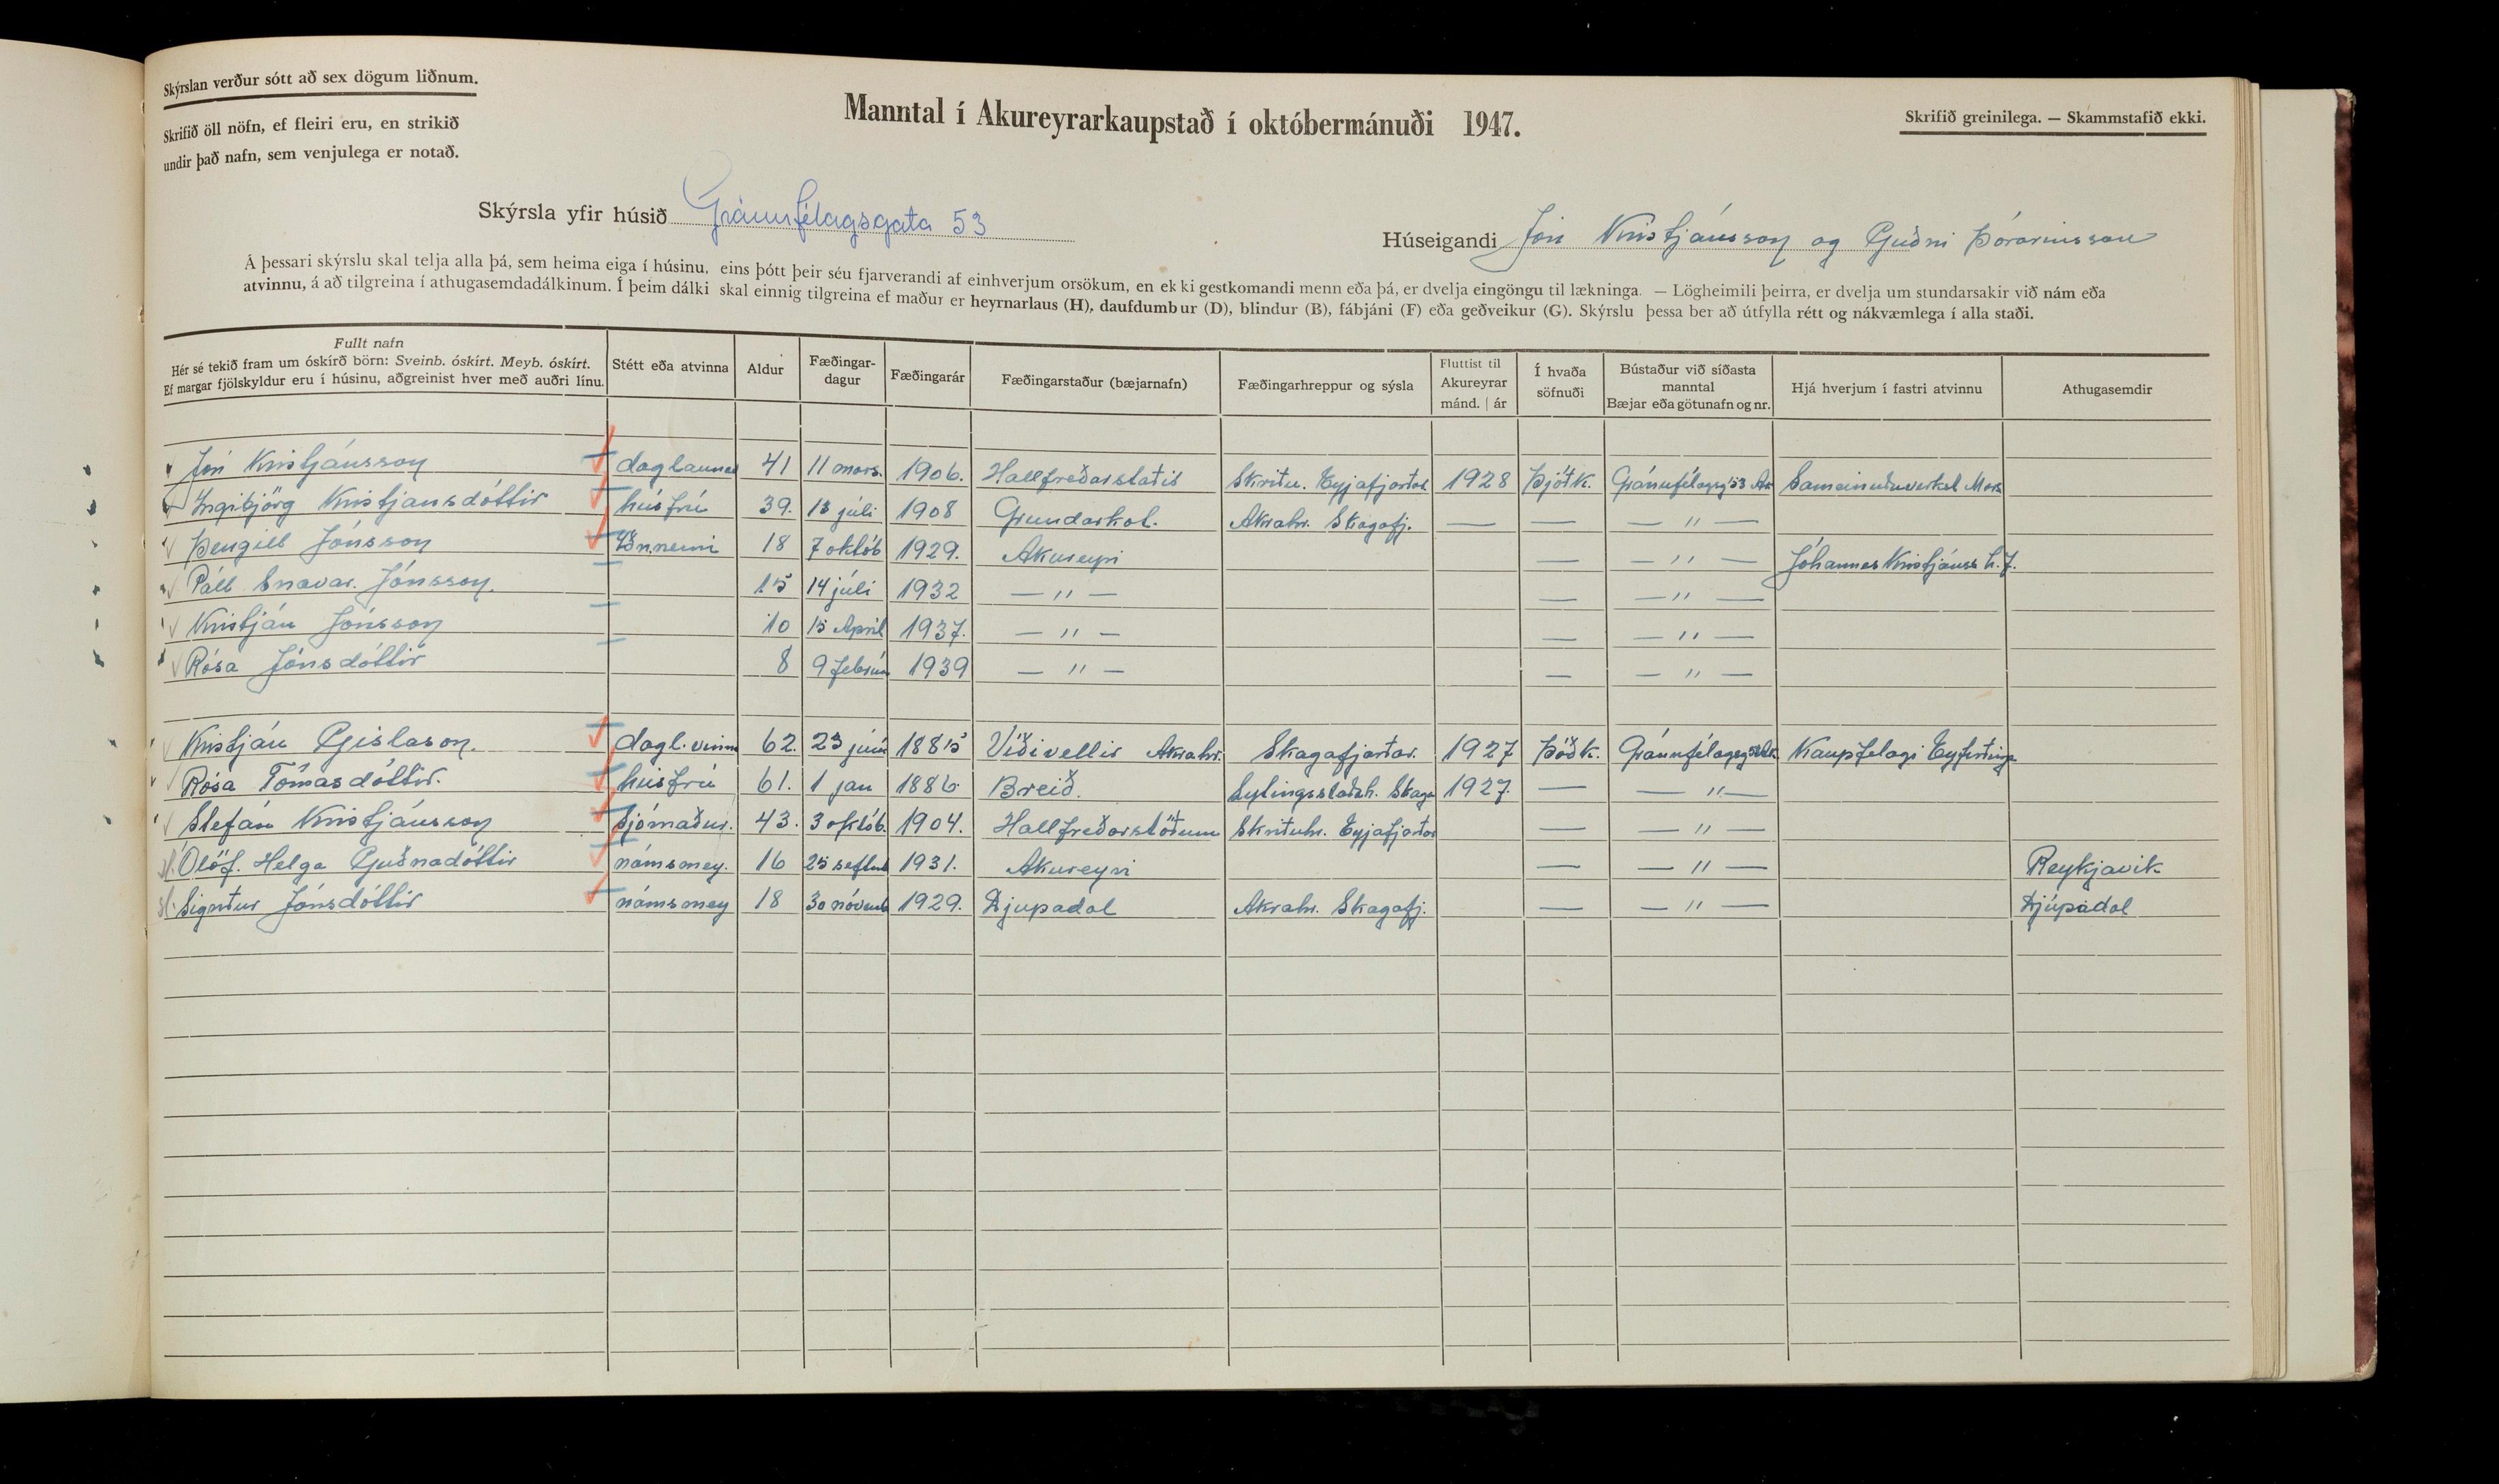 Skýrslan verður sótt að sex dögum liðnum.
Skrifið öll nöfn, ef fleiri eru, en strikið
undir það nafn, sem venjulega er notað.
Manntal í Akureyrarkaupstað í októbermánuði 1947.
Skrifið greinilega. — Skammstafið ekki.
Skýrsla yfir húsið Gránufélagsgata 53
Húseigandi Jón Kristjánsson og Guðni Þórarinsson
Á þessari skýrslu skal telja alla þá, sem heima eiga í húsinu, eins þótt þeir séu fjarverandi af einhverjum orsökum, en ekki gestkomandi menn eða þá, er dvelja eingöngu til lækninga. — Lögheimili þeirra, er dvelja um stundarsakir við nám eða
atvinnu, á að tilgreina í athugasemdadálkinum. Í þeim dálki skal einnig tilgreina ef maður er heyrnarlaus (H), daufdumbur (D), blindur (B), fábjáni (F) eða geðveikur (G). Skýrslu þessa ber að útfylla rétt og nákvæmlega í alla staði.
Fullt nafn
Hér sé tekið fram um óskírð börn: Sveinb. óskírt. Meyb. óskírt.
Ef margar fjölskyldur eru í húsinu, aðgreinist hver með auðri línu.
Stétt eða atvinna
Aldur
Fæðingar-
dagur
Fæðingarár
Fæðingarstaður (bæjarnafn)
Fæðingarhreppur og sýsla
Fluttist til
Akureyrar
mánd. | ár
Í hvaða
söfnuði
Bústaður við síðasta
manntal
Bæjar eða götunafn og nr.
Hjá hverjum í fastri atvinnu
Athugasemdir
Jón Kristjánsson daglauna 41 11 mars. 1906. Hallfreðarstatis Skriðu. Eyjafjarðar 1928 Þjóðk. Gránufélagsg 53 Ak
Ingibjörg Kristjansdóttir húsfrú 39. 13 júli 1908 Grundarkot. Akrahr. Skagafj. — — — " —
Þengill Jónsson Iðn.nemi 18 7 októb 1929. Akureyri — — " — Jóhannes Kristjánss h.f.
Páll Snævar. Jónsson. 15 14 júli 1932 — " — — — " —
Kristján Jónsson 10 15 April 1937. — " — — — " —
Rósa Jónsdóttir 8 9 febrúa 1939 — " — — — " —
Kristján Gislason. dagl. vinna 62. 23 júni 1885 Víðivellir Akrahr. Skagafjarðar. 1927 Þóðk. Gránufélagsg Kaupfelagi Eyfirðinga
Rósa Tómasdóttir. húsfrú 61. 1 jan 1886 Breið. Lýtingsstaðah. Skaga 1927 — — " —
Stefán Kristjánsson Sjómaður. 43. 3 októb. 1904. Hallfreðarstöðum Skriðuhr. Eyjafjarðar — — " —
Ólöf. Helga Guðnadóttir námsmey. 16 25 septemb 1931. Akureyri — — " — Reykjavik
Sigriður Jónsdóttir námsmey 18 30 nóvemb 1929. Djupadal Akrahr. Skagafj. — — " — Djúpadal